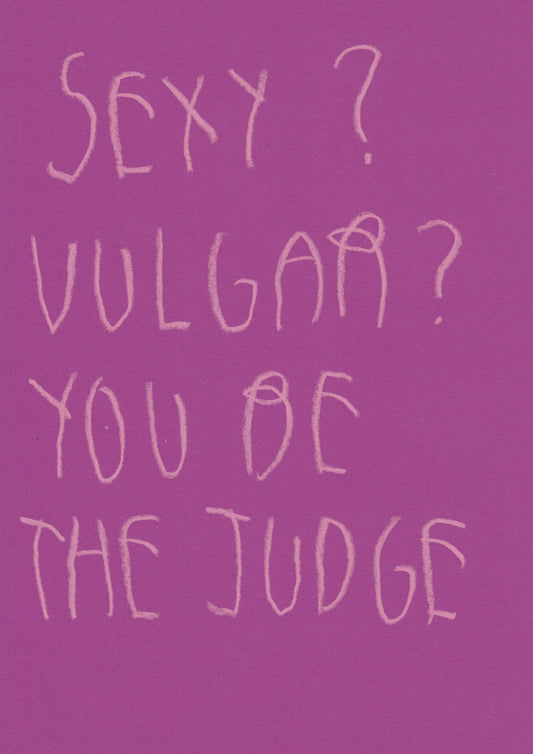 SEXY ?
VULGAR ?
YOU BE
THE JUDGE